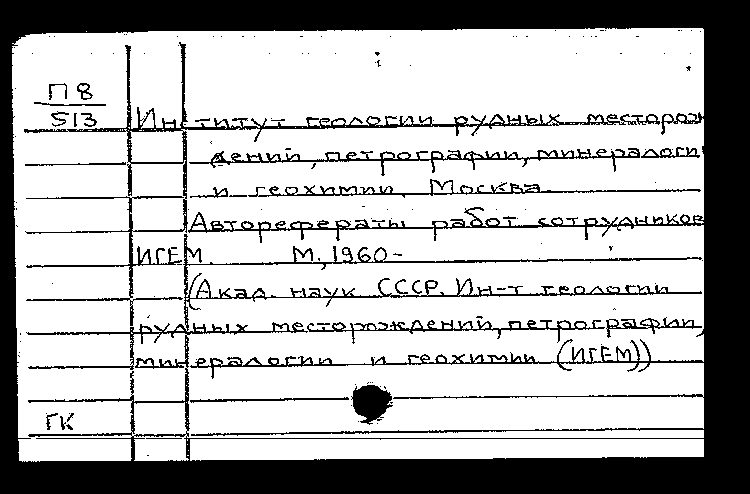 П8
513
Институт геологии рудных месторож
дений, петрографии, минералоги
и геохимии. Москва.
Авторефераты работ сотрудников
ИГЕМ. М., 1960-
(Акад. наук СССР. Ин-т геологии
рудных месторождений, петрографии,
минералогии и геохимии (ИГЕМ))
ГК